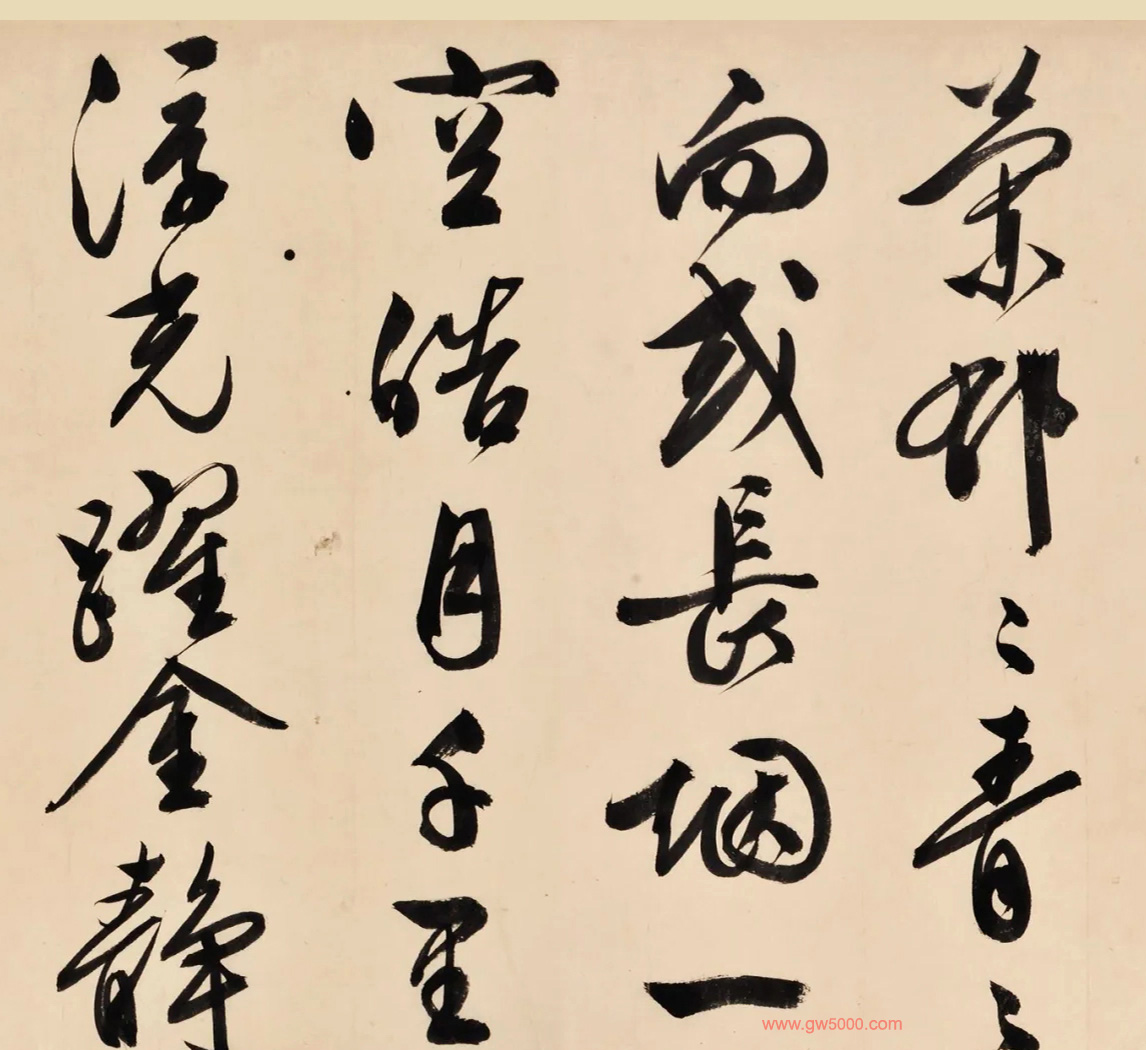 蘭郁〻青〻
而或長烟一
空皓月千里
浮光躍金静
www.gw5000.com